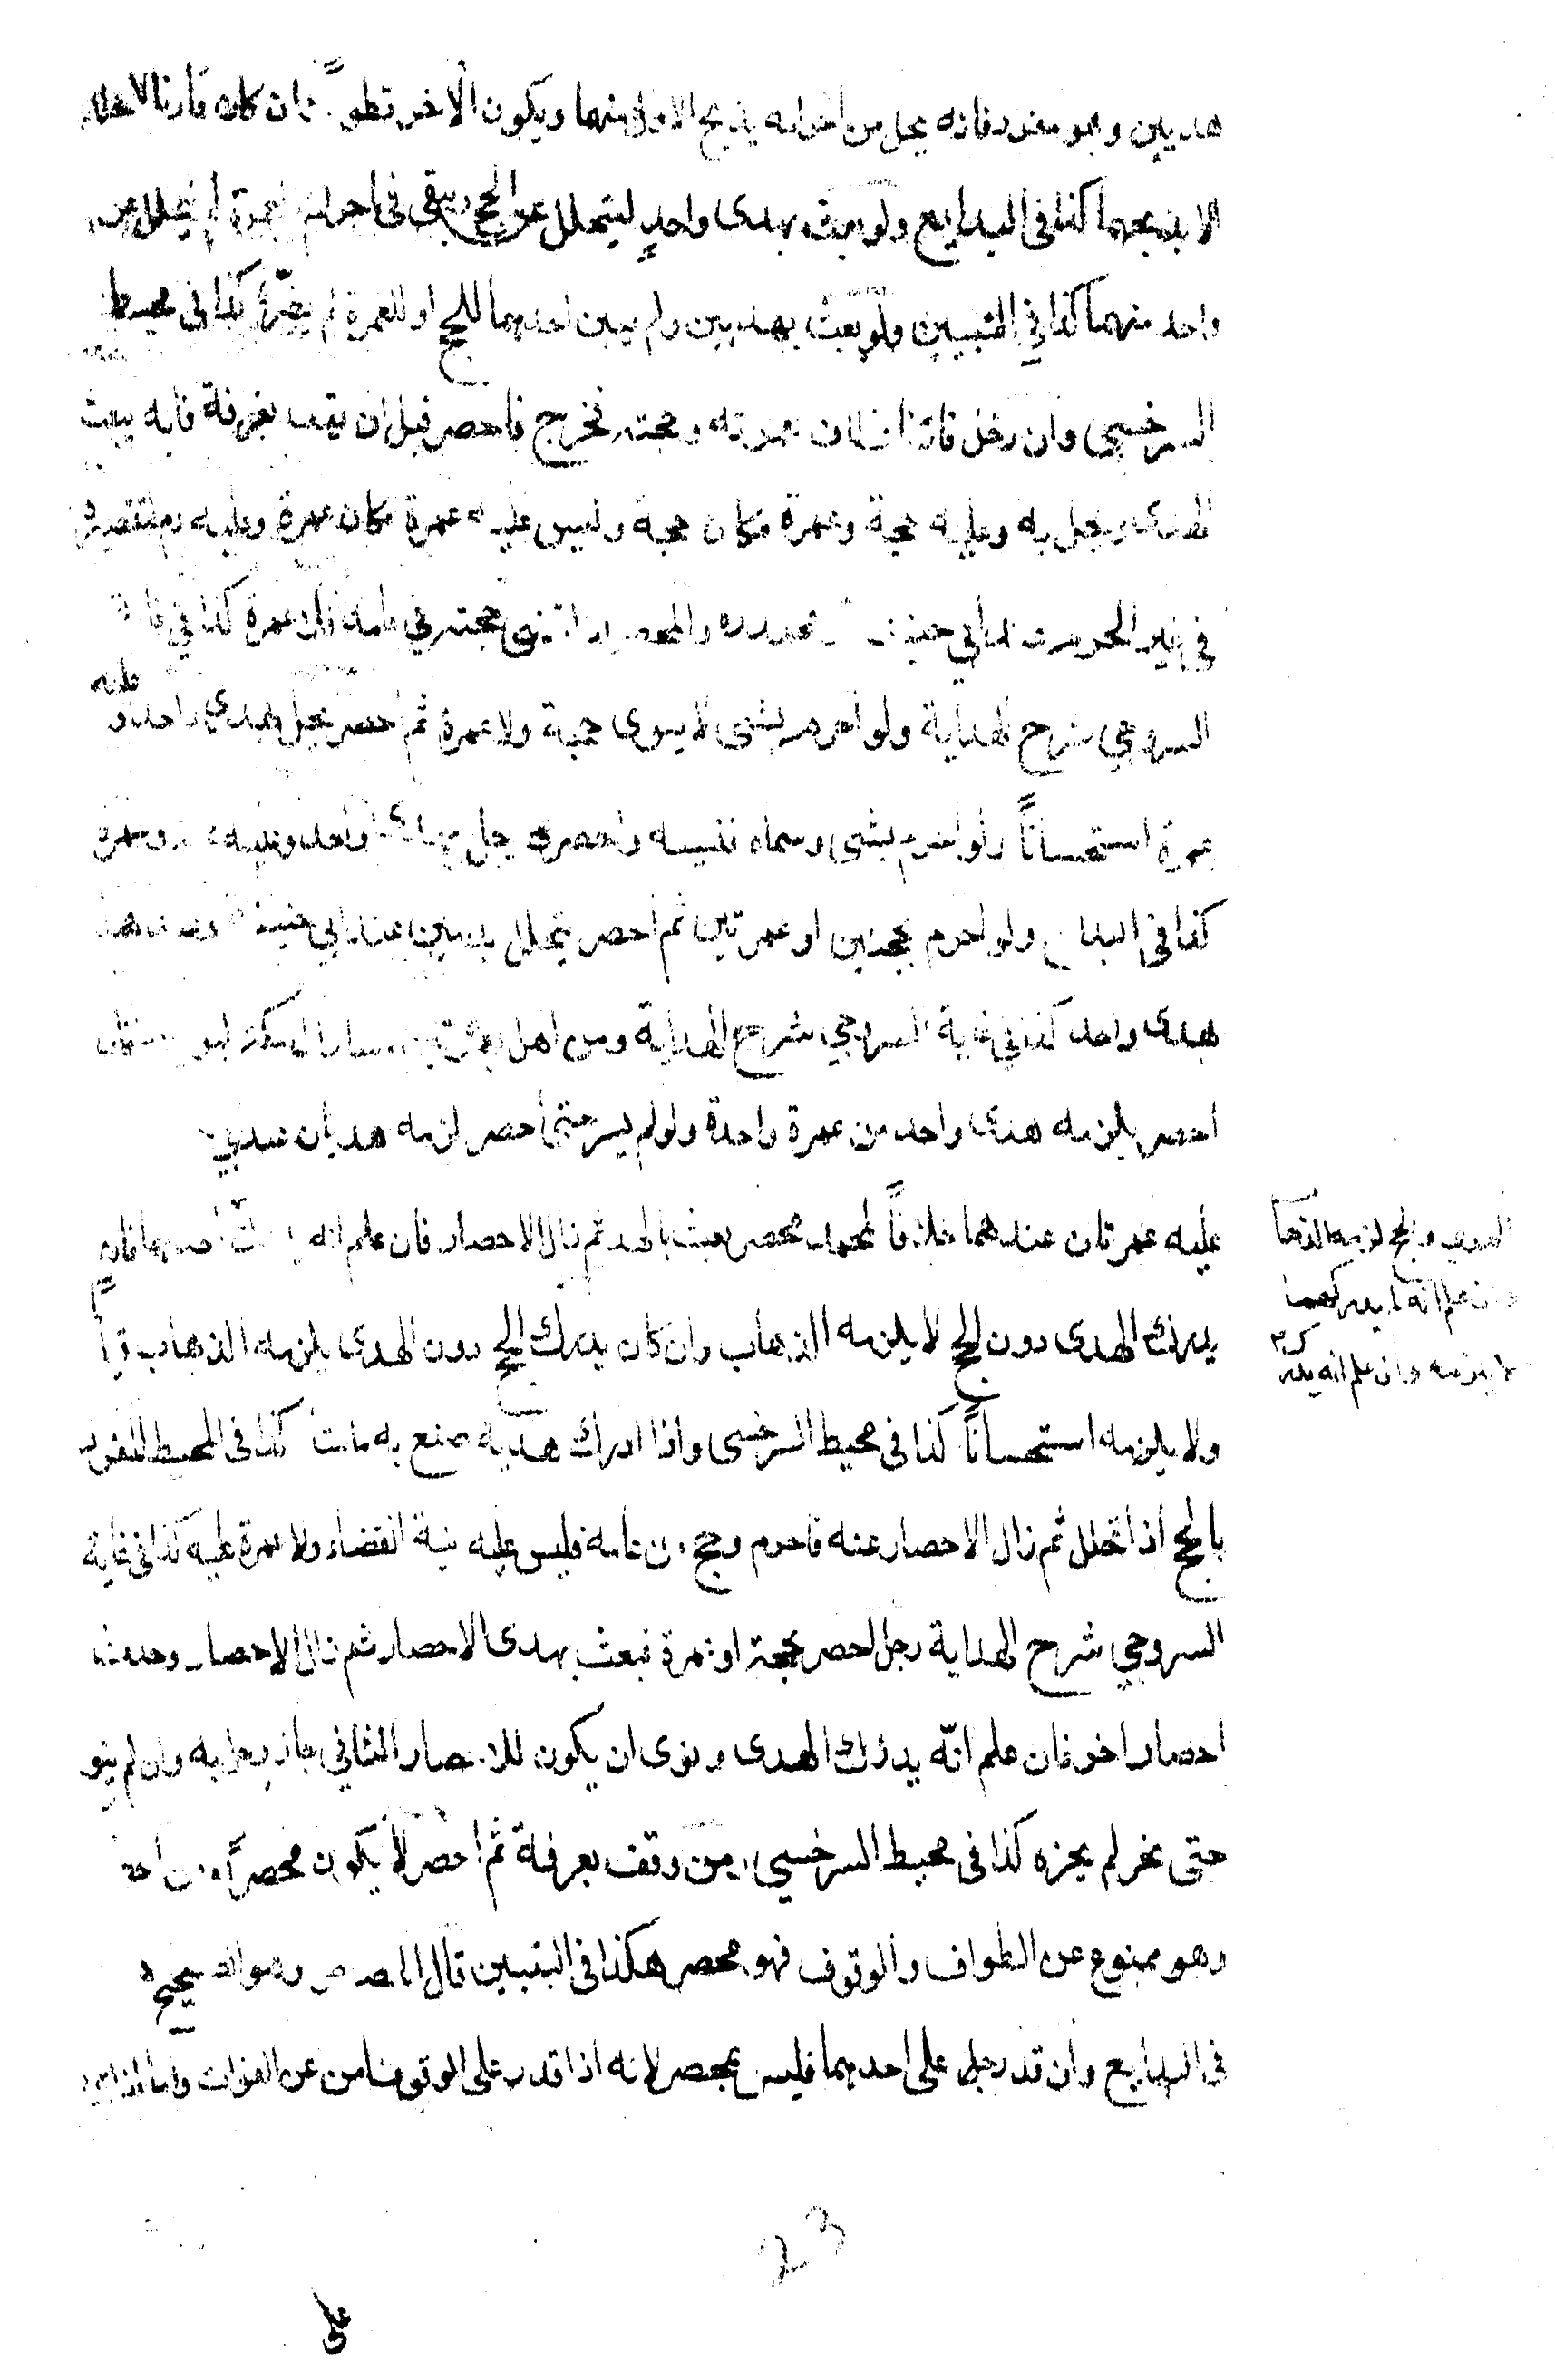 هديين وهو مفرد فانه يحل من احرامه يذبح الاول منهما ويكون الاخر تطوعاً وان كان قارنا لا يحل
الا بذبحهما كذا فى البدايع ولو بعث بهدى واحدٍ ليتحلل عن الحج ويبقى فى احرام العمرة لم يتحلل من
واحد منهما كذا في التبيين ولو بعث بهديين ولم يبين احدهما للحج او للعمرة لم يضره كذا فى محيط
السرخسي وان دخل قارنا فطاف لعمرته وحجته فخرج فاحصر قبل ان يقف بعرفة فانه يبعث
الهدى ويحل به وعليه حجة وعمرة مكان حجة وليس عليه عمرة مكان عمرة وعليه دم لتقصيره
في غير الحرم عند ابي حنيفة ومحمد والمحصر اذا قضى حجته في عامه ذلك عمرة كذا في غاية
السروجي شرح الهداية ولو احرم بشئ لا ينوى حجة ولا عمرة ثم احصر يحل بهدي واحد وعليه
عمرة استحساناً ولو احرم بشئ وسماه نفسيه واحصر يحل بهدى واحد وعليه حجة وعمرة
كذا فى البدايع ولو احرم بحجتين او عمرتين ثم احصر يتحلل بهديين عند ابي حنيفة وعندهما
بهدى واحد كذا في غاية السروجي شرح الهداية ومن اهل بعمرتين وسار الى مكة ليو
احصر يلزمه هدى واحد من عمرة واحدة ولو لم يسر حتى احصر لزمه هديان
عليه عمرتان عندهما خلافاً لمحمد محصر بعث بالهدى ثم زال الاحصار فان علم انه يدرك
يدرك الهدى دون الحج لا يلزمه الذهاب وان كان يدرك الحج دون الهدى يلزمه الذهاب قياساً
ولا يلزمه استحساناً كذا فى محيط السرخسى واذا ادرك هديه صنع به ما شاء كذا فى المحيط المفرد
بالحج اذا تحلل ثم زال الاحصار عنه فاحرم وحج من عامه فليس عليه نية القضاء ولا عمرة عليه كذا فى غاية
السروجي شرح الهداية رجل احصر بحجة او بعمرة فبعث بهدى الاحصار ثم زال الاحصار وحدث
احصار اخر فان علم انّه يدرك الهدى ونوى ان يكون للاحصار الثاني جاز ويحل به وان لم ينو
حتى نحر لم يجزه كذا فى محيط السرخسي ومن وقف بعرفة ثم احصر لا يكون محصراً
وهو ممنوع عن الطواف والوقوف فهو محصر هكذا فى التبيين قال الجصاص وهو الصحيح
فى البدايع وان قدر على احدهما فليس بمحصر لانه اذا قدر على الوقوف امن عن الفوات واما اذا
الهدى والحج لزمه الذهاب
وان علم انه لا يدركهما
لا يلزمه وان علم انه يدرك
23
على